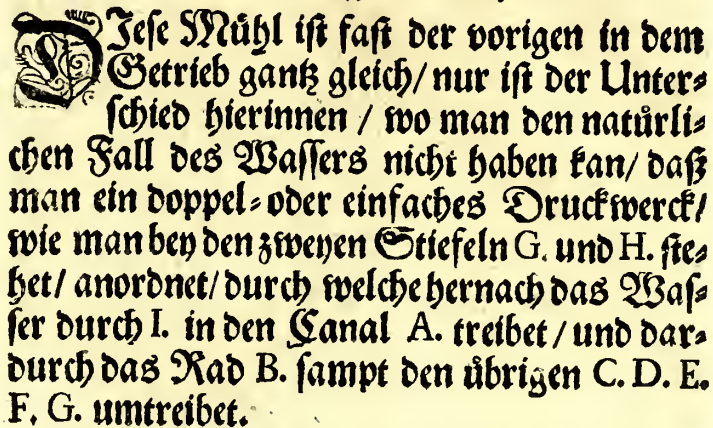 DIese Mühl ist fast der vorigen in dem
Getrieb gantz gleich/ nur ist der Unter-
schied hierinnen / wo man den natürli-
chen Fall des Wassers nicht haben kan/ daß
man ein doppel- oder einfaches Druckwerck/
wie man bey den zweyen Stiefeln G. und H. ste-
het/ anordnet/ durch welche hernach das Was-
ser durch I. in den Canal A. treibet / und dar-
durch das Rad B. sampt den übrigen C. D. E.
F. G. umtreibet.